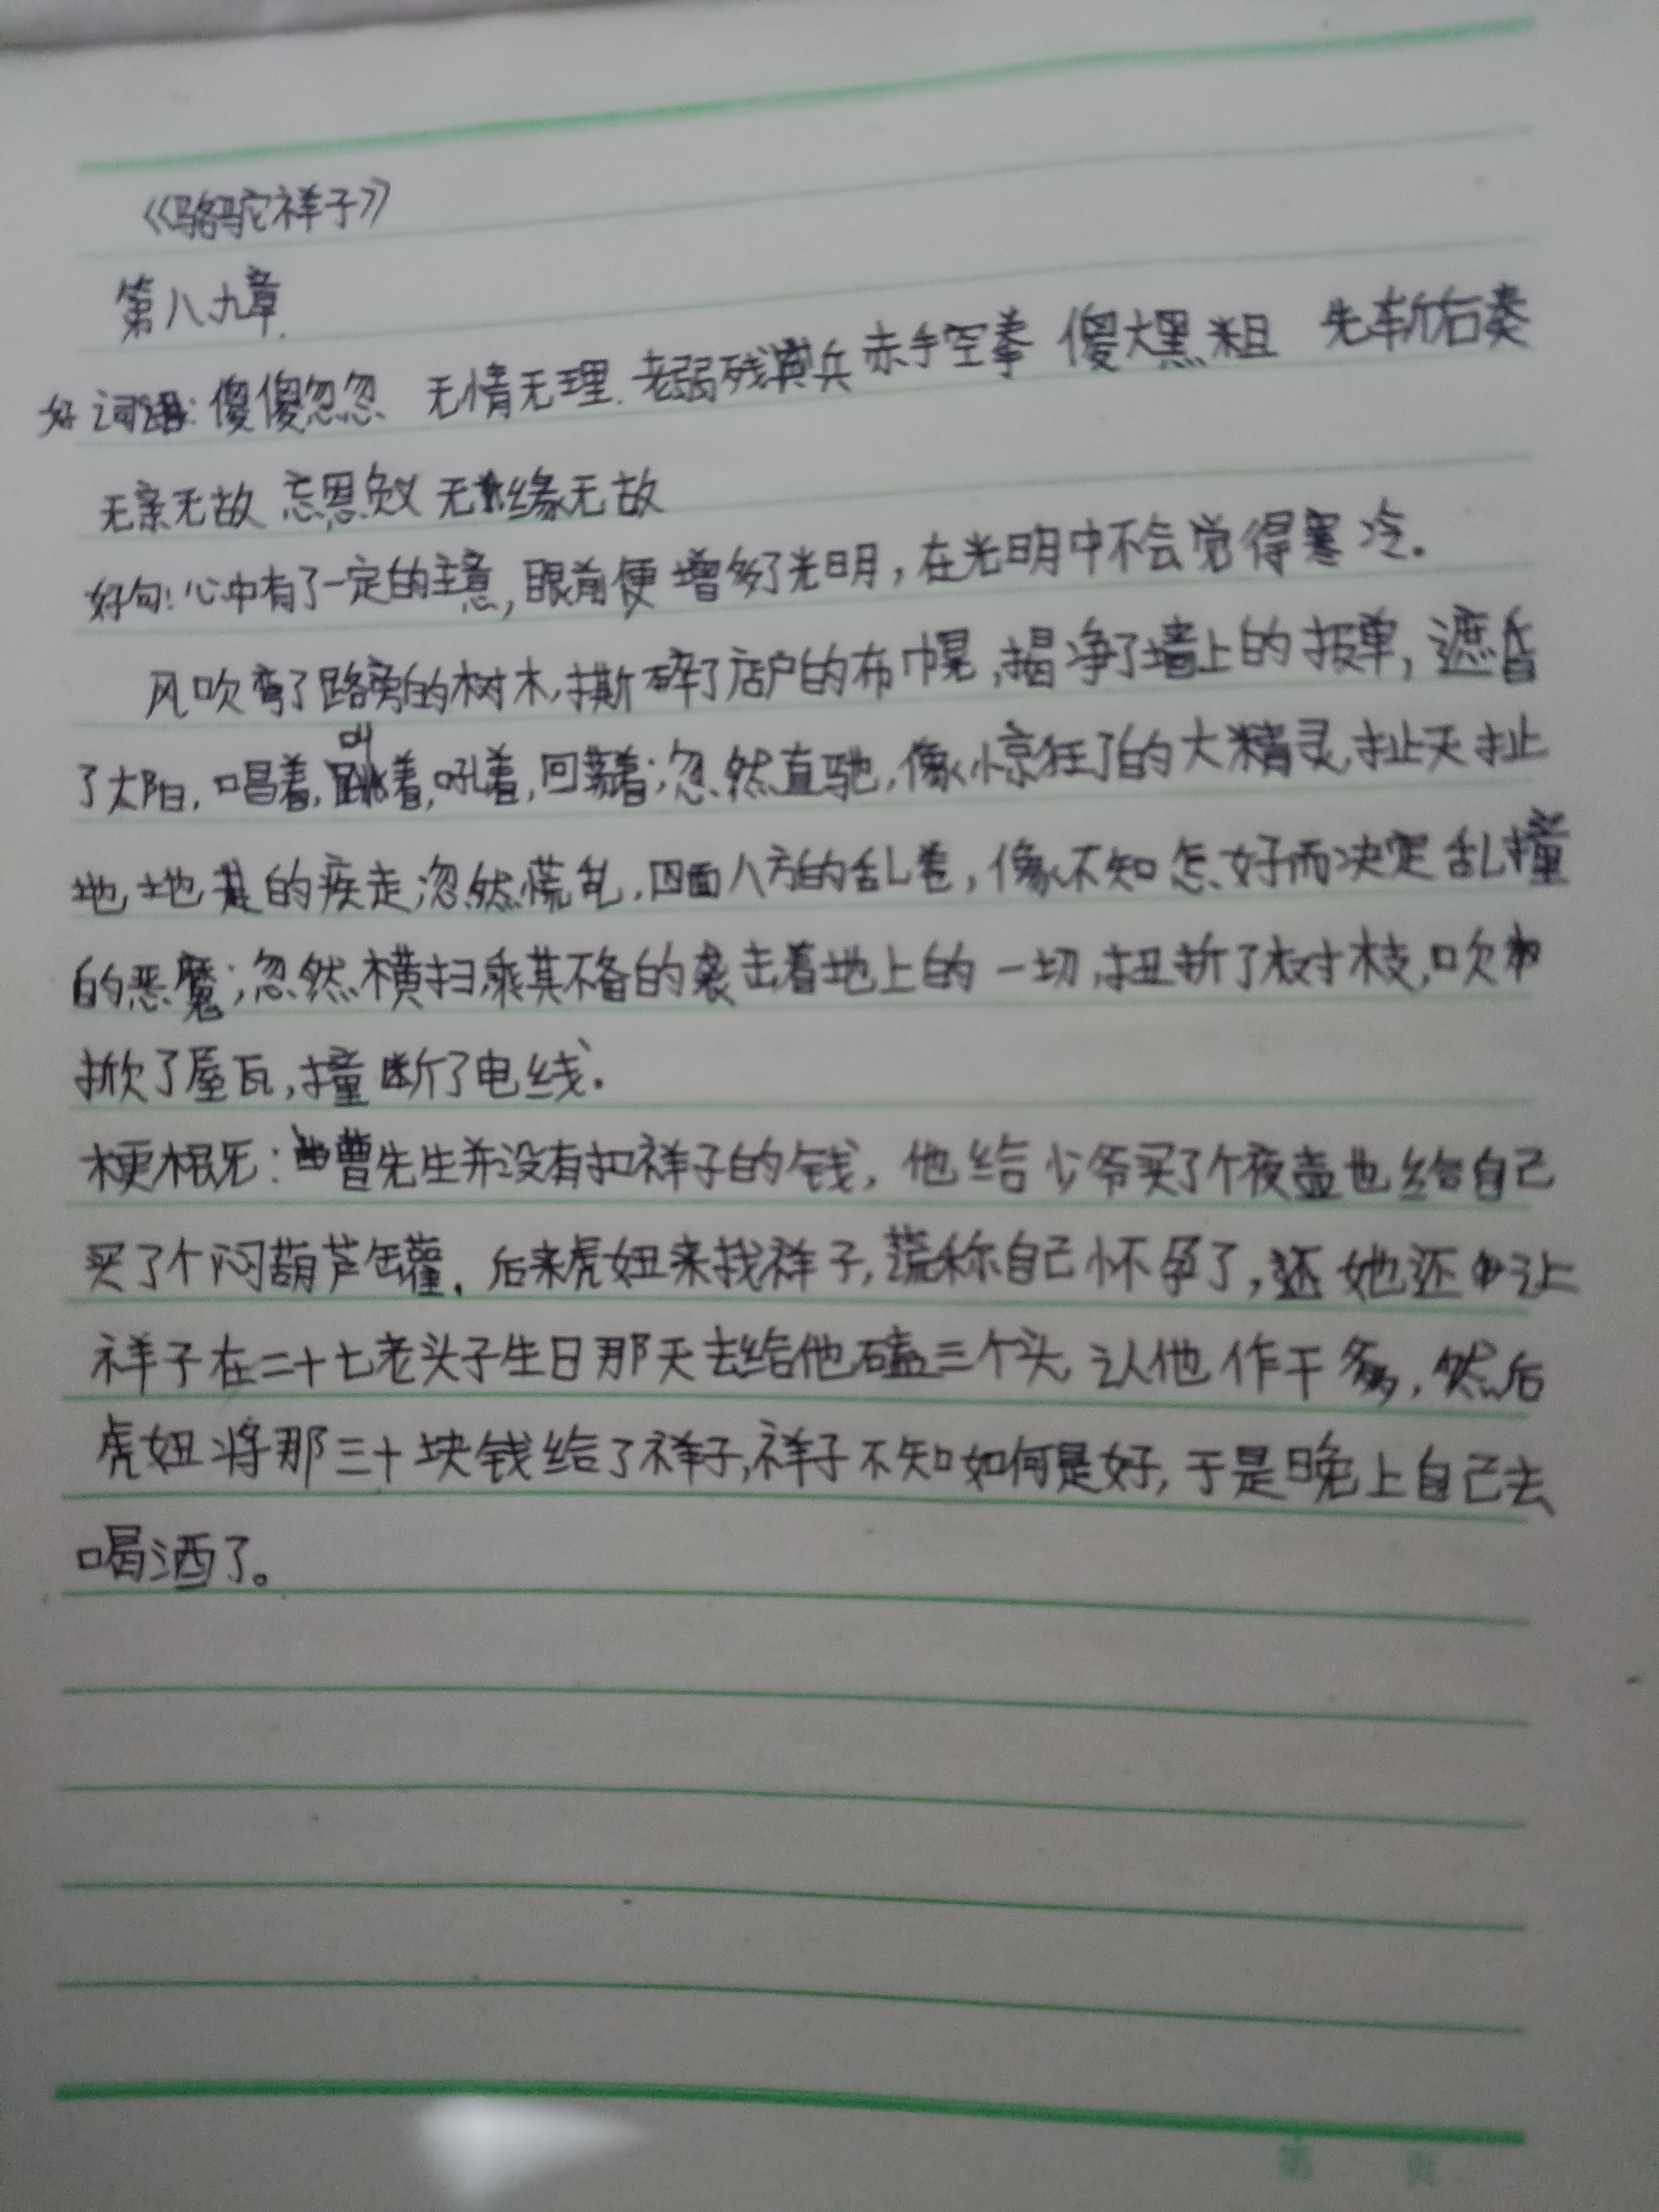 《骆驼祥子》
第八九章
好词语:傻傻忽忽 无情无理.老弱残兵 赤手空拳 傻大黑粗 先斩后奏
无亲无故 忘恩负义 无缘无故
好句:心中有了一定的主意,眼前便增多了光明,在光明中不会觉得寒冷。
风吹弯了路旁的树木,撕碎了店户的布幌,揭净了墙上的报单,遮昏
了太阳,唱着,叫着,吼着,回荡着;忽然直驰,像惊狂了的大精灵,扯天扯
地地的疾走;忽然慌乱,四面八方的乱卷,像不知怎好而决定乱撞
的恶魔;忽然横扫,乘其不备的袭击着地上的一切,扭折了树枝,吹
掀了屋瓦,撞断了电线.
梗概:曹先生并没有扣祥子的钱,他给少爷买了个夜壶也给自己
买了个闷葫芦罐.后来虎妞来找祥子,谎称自己怀孕了,她还让
祥子在二十七老头子生日那天去给他磕三个头,认他作干爹,然后
虎妞将那三十块钱给了祥子,祥子不知如何是好,于是晚上自己去
喝酒了。
第 页